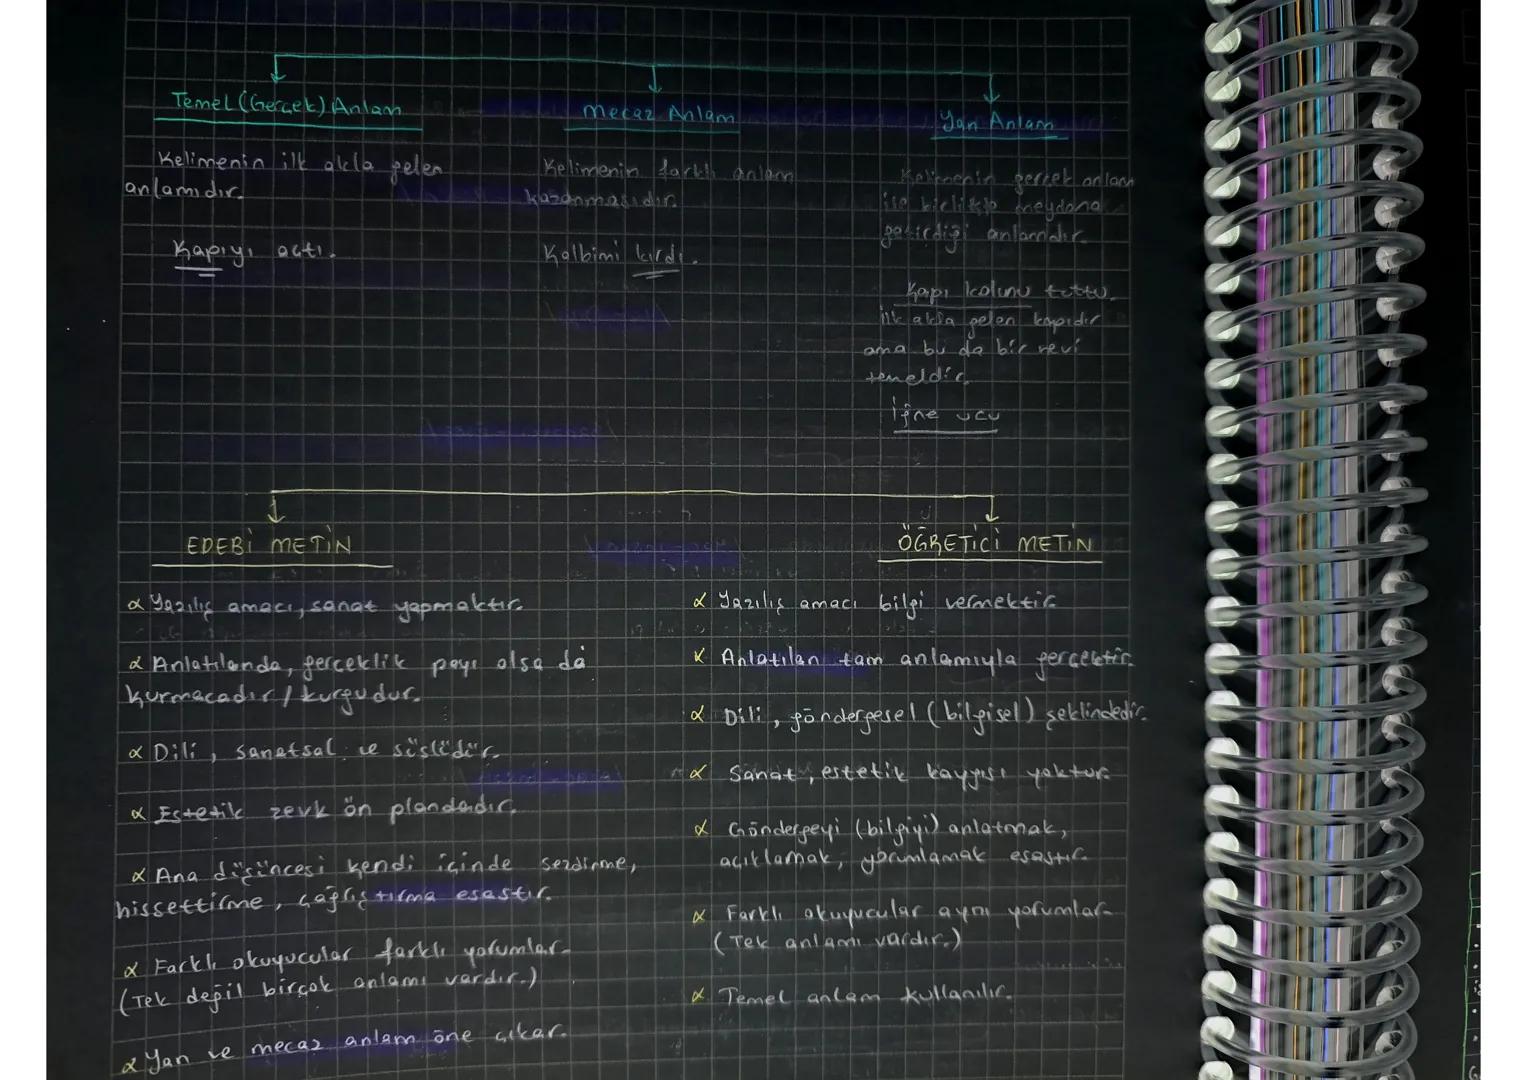 Temel (Gerçek) Anlam
Kelimenin ilk akla gelen
anlamıdır.
Kapıyı açtı.
Mecaz Anlam
Kelimenin farklı anlam
kazanmasıdır.
Kalbimi kırdı.
Yan Anlam
Kelimenin gerçek anlam
ile birlikte meydana
getirdiği anlamdır.
Kapı kolunu tuttu.
ilk akla gelen kapıdır
ama bu da bir nevi
temeldir.
İğne ucu
EDEBİ METİN
α Yazılış amacı, sanat yapmaktır.
α Anlatılanda, gerçeklik payı olsa da
kurmacadır / kurgudur.
α Dili, sanatsal ve süslüdür.
α Estetik zevk ön plandadır.
α Ana düşüncesi kendi içinde sezdirme,
hissettirme, çağrıştırma esastır.
α Farklı okuyucular farklı yorumlar.
(Tek değil birçok anlamı vardır.)
α Yan ve mecaz anlam öne çıkar.
ÖĞRETİCİ METİN
α Yazılış amacı bilgi vermektir.
α Anlatılan tam anlamıyla gerçektir.
α Dili, göndergesel (bilgisel) şeklindedir.
α Sanat, estetik kaygısı yoktur.
α Göndergeyi (bilgiyi) anlatmak,
açıklamak, yorumlamak esastır.
α Farklı okuyucular aynı yorumlar.
(Tek anlamı vardır.)
α Temel anlam kullanılır.